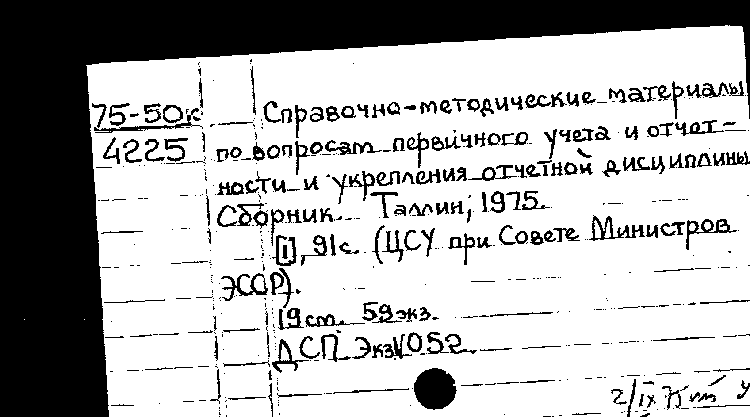 75-50к
4225
Справочно-методические материалы
по вопросам первичного учета и отчет-
ности и укрепления отчетной дисциплины
Сборник. Таллин, 1975.
[1], 91с. (ЦСУ при Совете Министров
ЭССР).
19см. 59экз.
ДСП Экз№052.
2/IX 75